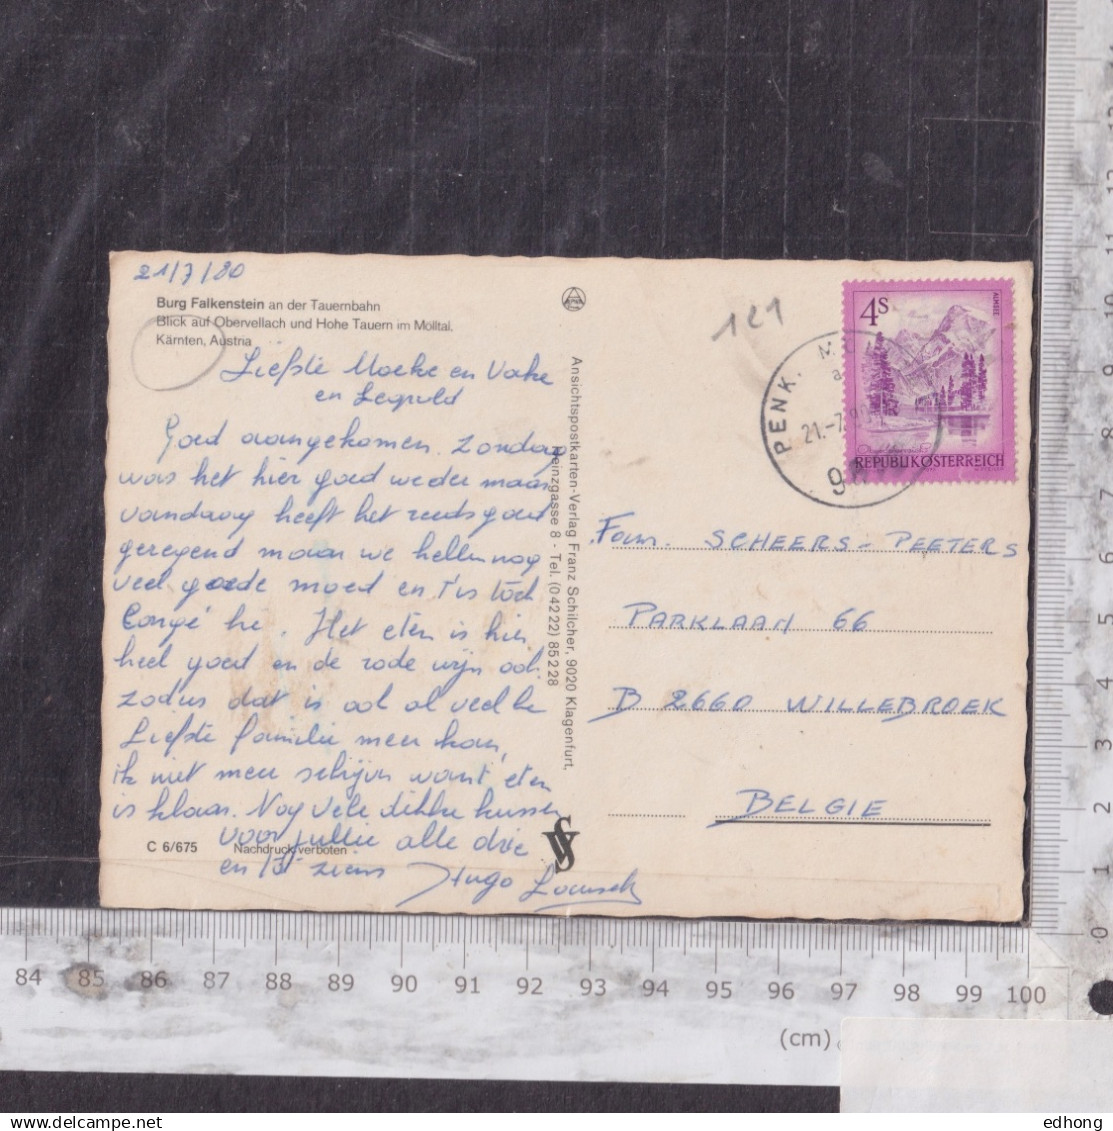 21/7/80
Burg Falkenstein an der Tauernbahn
Blick auf Obervellach und Hohe Tauern im Mölltal.
Kärnten, Austria
Liefste Moeke en Vake
en Leopold
Goed aangekomen. Zondag
was het hier goed weder maar
vandaag heeft het reeds goed
geregend maar we hebben nog
veel goede moed en t'is toch
Congé hé. Het eten is hier
heel goed en de rode wijn ook
zodus dat is ook al veel hé
Liefste familie meer kan
ik niet meer schijven want eten
is klaar. Nog vele dikke kussen
voor jullie alle drie
en tot ziens Hugo
C 6/675
Nachdruck verboten
Ansichtspostkarten-Verlag Franz Schilcher, 9020 Klagenfurt,
Heinzgasse 8 - Tel. (04222) 85228
121
4S
ALMSEE
REPUBLIK ÖSTERREICH
PENK
21.-7.80
Fam. SCHEERS-PEETERS
PARKLAAN 66
B 2660 WILLEBROEK
BELGIE
84 85 86 87 88 89 90 91 92 93 94 95 96 97 98 99 100
(cm)
0 1 2 3 4 5 6 7 8 9 10 11 12
edhong